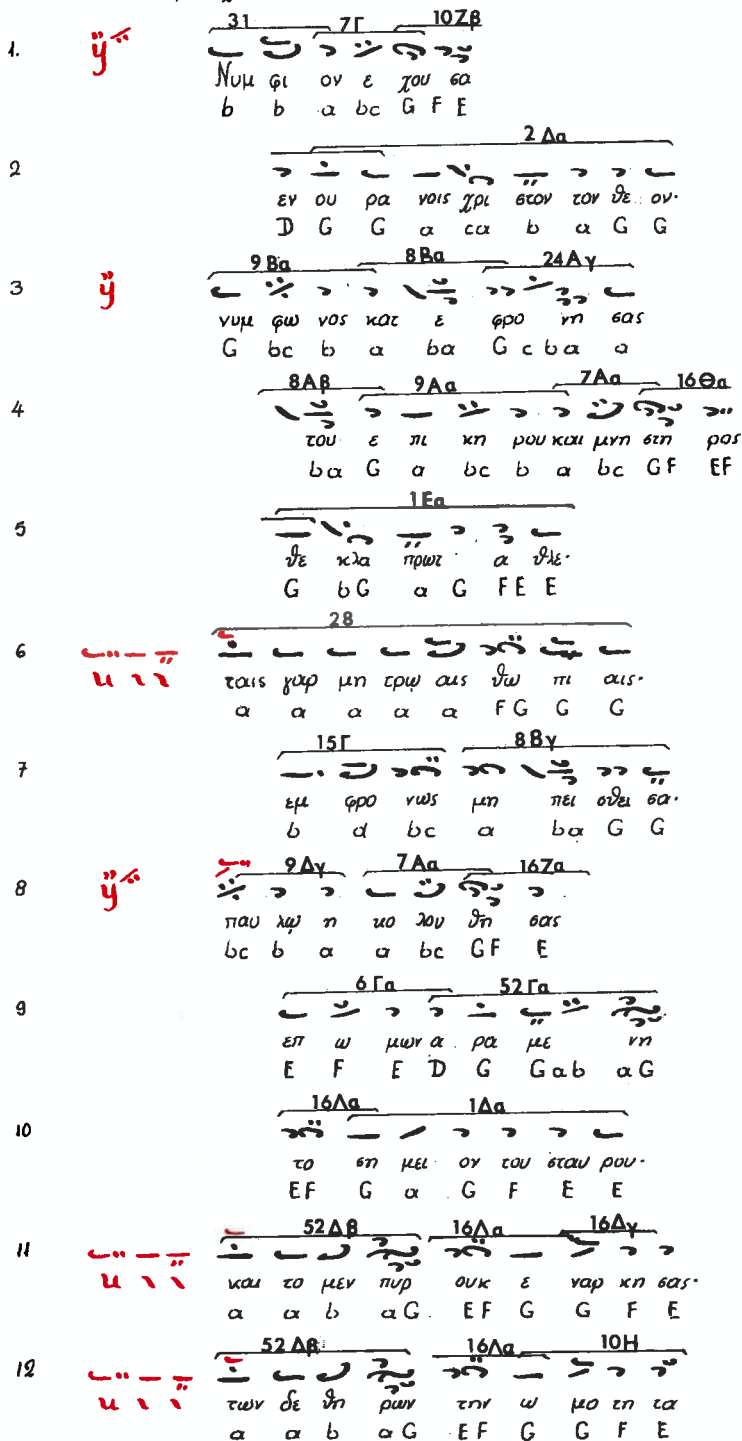 31 7Γ 10Ζβ
1. ÿ
Νυμ φι ον ε χου σα
b b a bc G F E
2 Δα
2
εν ου ρα νοις χρι στον τον θε ον·
D G G a ca b a G G
9 Βα 8 Βα 24 Α γ
3 ÿ
νυμ φω νος κατ ε φρο νη σας
G bc b a ba G c b a a
8 Αβ 9 Αα 7 Αα 16 Θα
4
του ε πι κη ρου και μνη στη ρος
ba G a bc b a bc GF EF
1 Εα
5
θε κλα πρωτ α θλε·
G bG a G FE E
28
6
ταις γαρ μη τρω αις θω πι αις·
a a a a a FG G G
15 Γ 8 Βγ
7
εμ φρο νως μη πει σθει σα·
b d bc a ba G G
9 Δγ 7 Αα 16 Ζα
8 ÿ
παυ λω η κο λου θη σας
bc b a a bc GF E
6 Γα 52 Γα
9
επ ω μων α ρα με νη
E F E D G G a b a G
16 Λα 1 Δα
10
το ση μει ον του σταυ ρου·
EF G a G F E E
52 Δβ 16 Λα 16 Δγ
11
και το μεν πυρ ουκ ε ναρ κη σας·
a a b a G EF G G F E
52 Δβ 16 Λα 10 Η
12
των δε θη ρων την ω μο τη τα
a a b a G EF G G F E